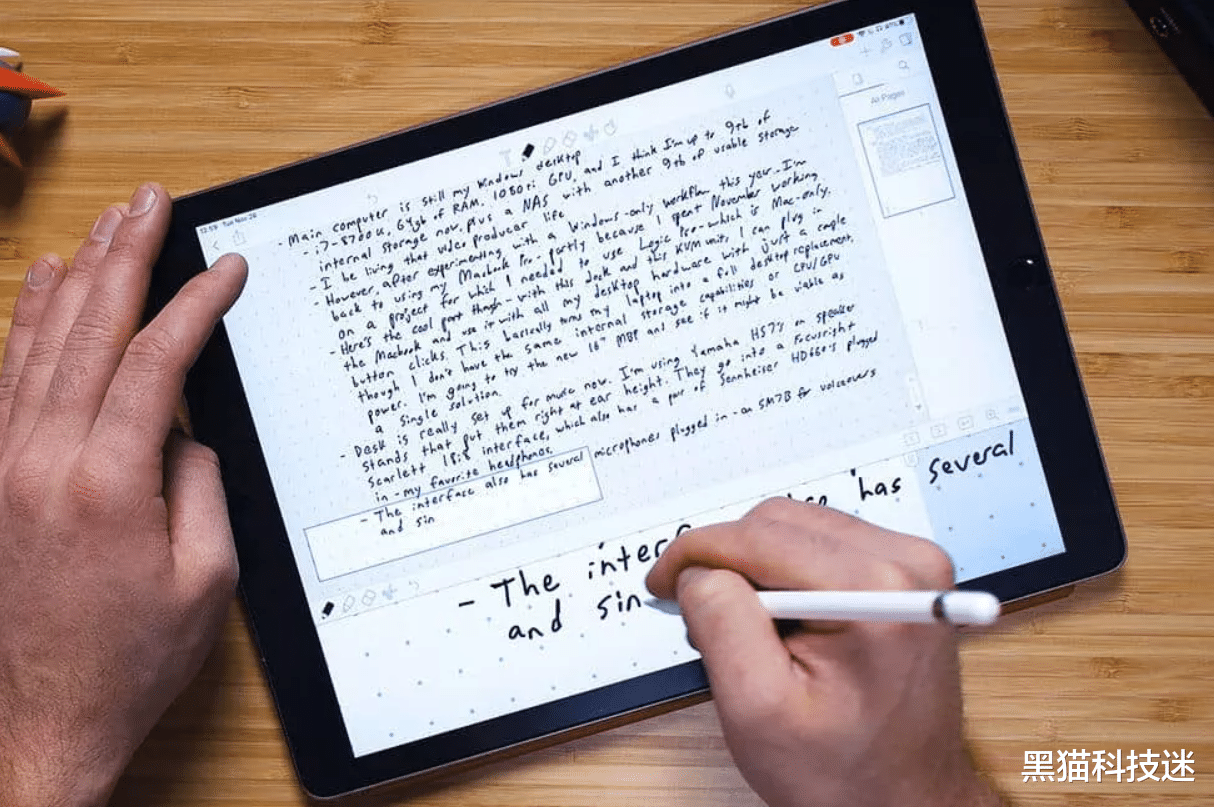 12:59 Tue Nov 26
All Pages
- Main computer is still my Windows desktop
- i7-8700K, 64gb of RAM, 1080ti GPU, and I think I'm up to 9tb of
internal storage now, plus a NAS with another 9tb of usable storage
- I be living that video producer life
- However, after experimenting with a Windows-only workflow this year, I'm
back to using my Macbook Pro - partly because I spent November working
on a project for which I needed to use Logic Pro - which is Mac-only.
- Here's the cool part though - with this dock and this KVM unit, I can plug in
the Macbook and use it with all my desktop hardware with just a couple
button clicks. This basically turns my laptop into a full desktop replacement,
though I don't have the same internal storage capabilities or CPU/GPU
power. I'm going to try the new 16" MBP and see if it might be viable as
a single solution.
- Desk is really set up for music now. I'm using Yamaha HS7's on speaker
stands that put them right at ear height. They go into a Focusright
Scarlett 18i8 interface, which also has a pair of Sennheiser HD660's plugged
in - my favorite headphones.
- The interface also has several microphones plugged in - an SM7B for voiceovers
and sin
- The has several
and sin
黑猫科技迷